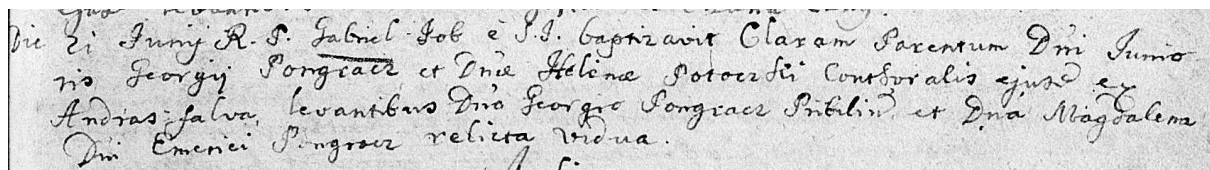 Die 21 Junij R. P. Gabriel Job è S.J. baptizavit Claram Parentum Dni Junio
ris Georgij Pongracz et Dnæ Helenæ Potoczki Conthoralis ejusd ex
Andras-falva, levantibus Dno Georgio Pongracz Pribilin et Dna Magdalena
Dni Emerici Pongracz relicta vidua.